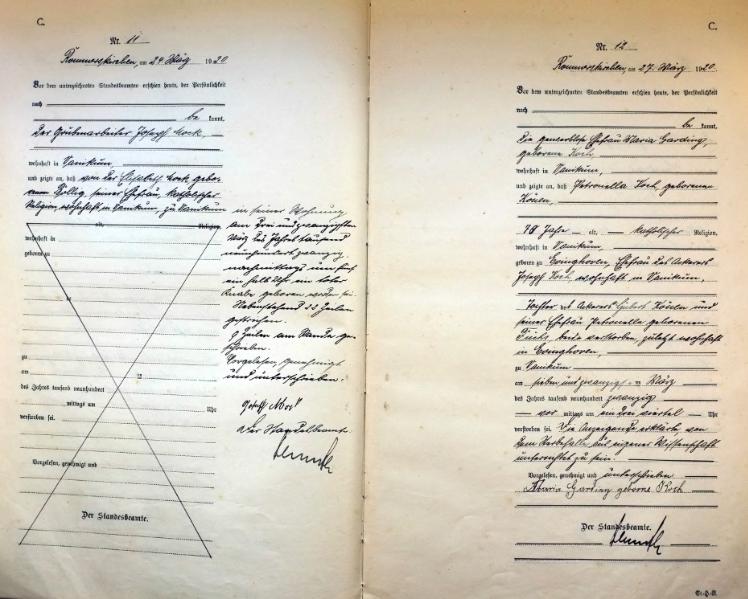 C.
Nr. 11
Rommerskirchen, am 24 März 1920
Vor dem unterzeichneten Standesbeamten erschien heute, der Persönlichkeit
nach
be kannt,
Der Grubenarbeiter Joseph
wohnhaft in Vanikum,
und zeigte an, daß von der Elisabeth gebor
seiner Ehefrau, katholischer
Religion, wohnhaft in Vanikum, zu Vanikum
Religion,
wohnhaft in
geboren zu
zu
am 19
des Jahres tausend neunhundert
mittags um Uhr
verstorben sei.
Vorgelesen, genehmigt und
Der Standesbeamte.
in seiner Wohnung
am drei und zwanzigsten
März des Jahres tausend
neunhundert zwanzig
nachmittags um fünf
ein halb Uhr ein toter
Knabe geboren worden sei.
Nebenstehend 22 Zeilen
gestrichen.
9 Zeilen am Rande ge-
schrieben.
Vorgelesen, genehmigt
und unterschrieben.
Der Standesbeamte.
C.
Nr. 12
Rommerskirchen, am 27. März 1920.
Vor dem unterzeichneten Standesbeamten erschien heute, der Persönlichkeit
nach
be kannt,
Die gewerblose Ehefrau Maria Garding,
geborene Koch,
wohnhaft in Vanikum,
und zeigte an, daß Petronella Koch geborenen
78 Jahre alt, katholischer Religion,
wohnhaft in Vanikum,
geboren zu Evinghoven, Ehefrau des Ackerers
Joseph Koch, wohnhaft in Vanikum,
Tochter des Ackerers und
seiner Ehefrau Petronella geborenen
beide verstorben, zuletzt wohnhaft
in Evinghoven,
zu Vanikum
am sieben und zwanzigsten März
des Jahres tausend neunhundert zwanzig
vor mittags um ein drei viertel Uhr
verstorben sei. Die Anzeigende erklärte von
dem Sterbefalle aus eigener Wissenschaft
unterrichtet zu sein.
Vorgelesen, genehmigt und unterschrieben
Maria Garding geborne Koch
Der Standesbeamte.